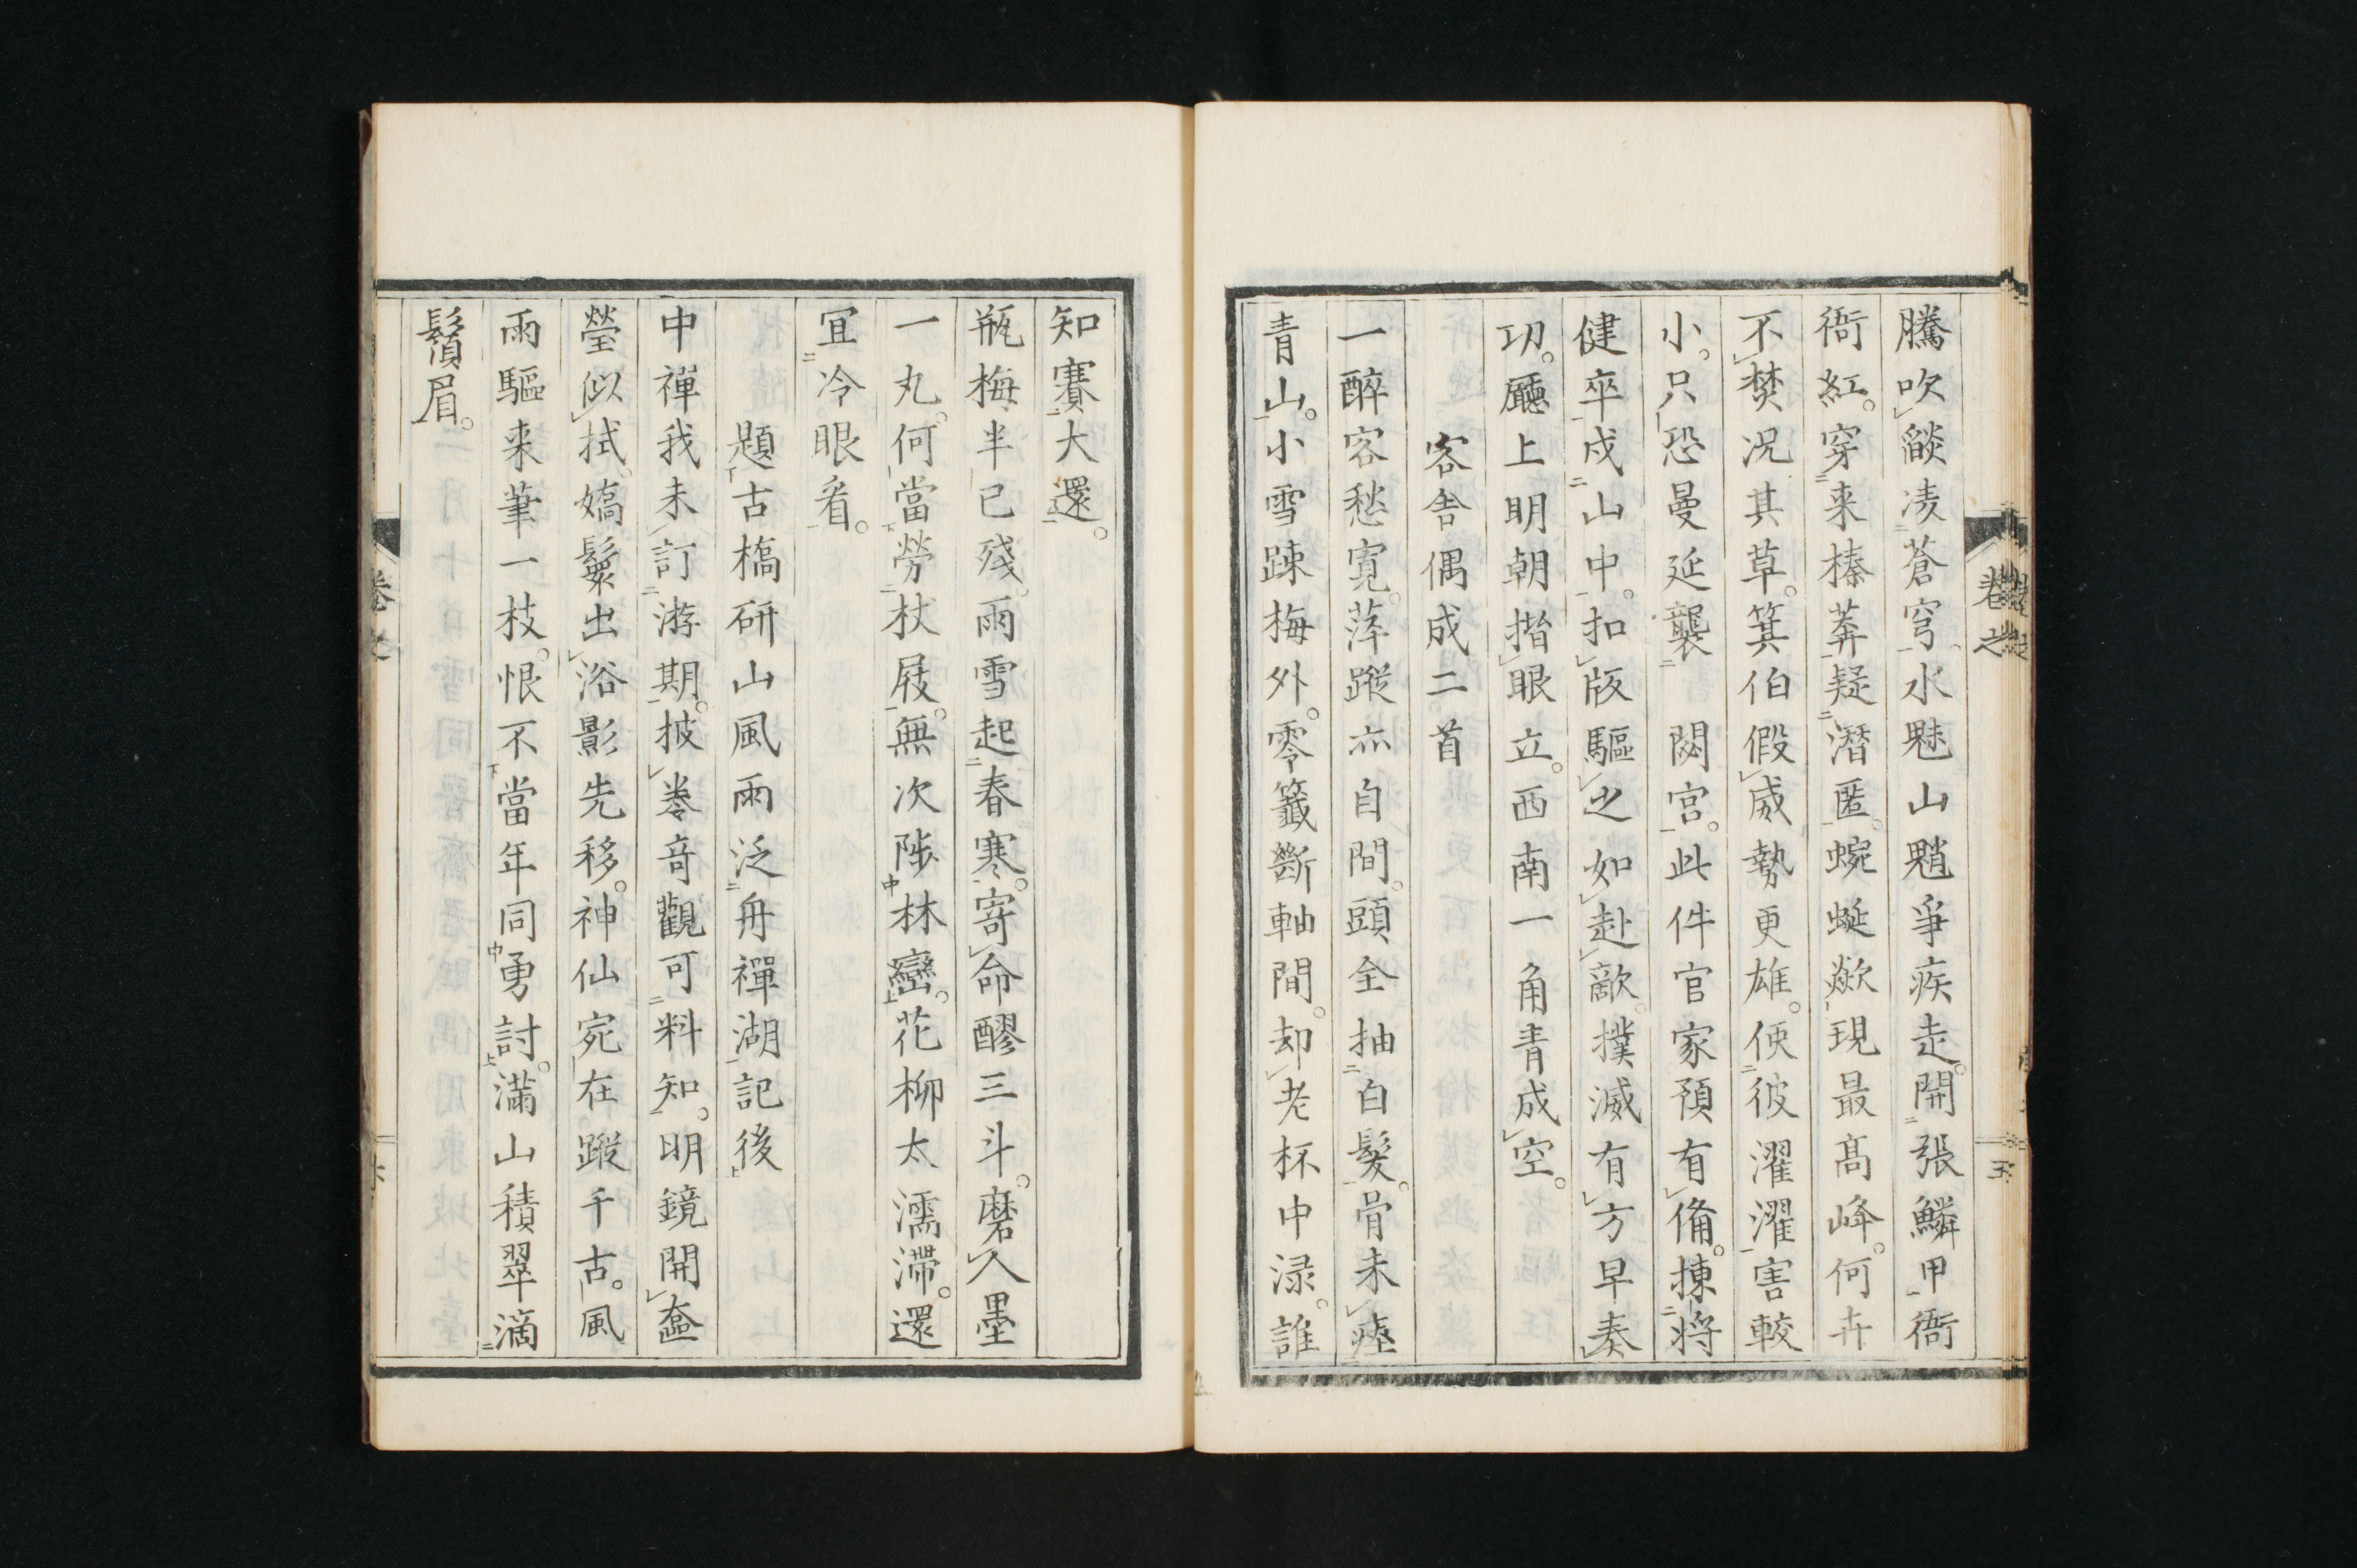 騰吹燄凌蒼穹水魅山魈爭疾走開張鱗甲衙
衙紅穿来榛莽疑潛匿蜿蜒歘現最高峰何卉
不焚況其草箕伯假威勢更雄便彼濯濯害較
小只恐曼延襲　閟宮此件官家預有備揀将
健卒戍山中扣版驅之如赴敵撲滅有方早奏
功廳上明朝揩眼立西南一角青成空
客舎偶成二首
一醉客愁寛萍蹤亦自間頭全抽白髮骨未瘞
青山小雪踈梅外零籤斷軸間却老杯中渌誰
知賽大還
瓶梅半已殘雨雪起春寒寄命醪三斗磨人墨
一丸何當勞杖屐無次陟林巒花柳太濡滯還
冝冷眼看
題古橋研山風雨泛舟禪湖記後
中禪我未訂游期披巻竒觀可料知明鏡開匳
瑩似拭嬌鬟出浴影先移神仙宛在蹤千古風
雨驅来筆一枝恨不當年同勇討滿山積翠滴
鬚眉